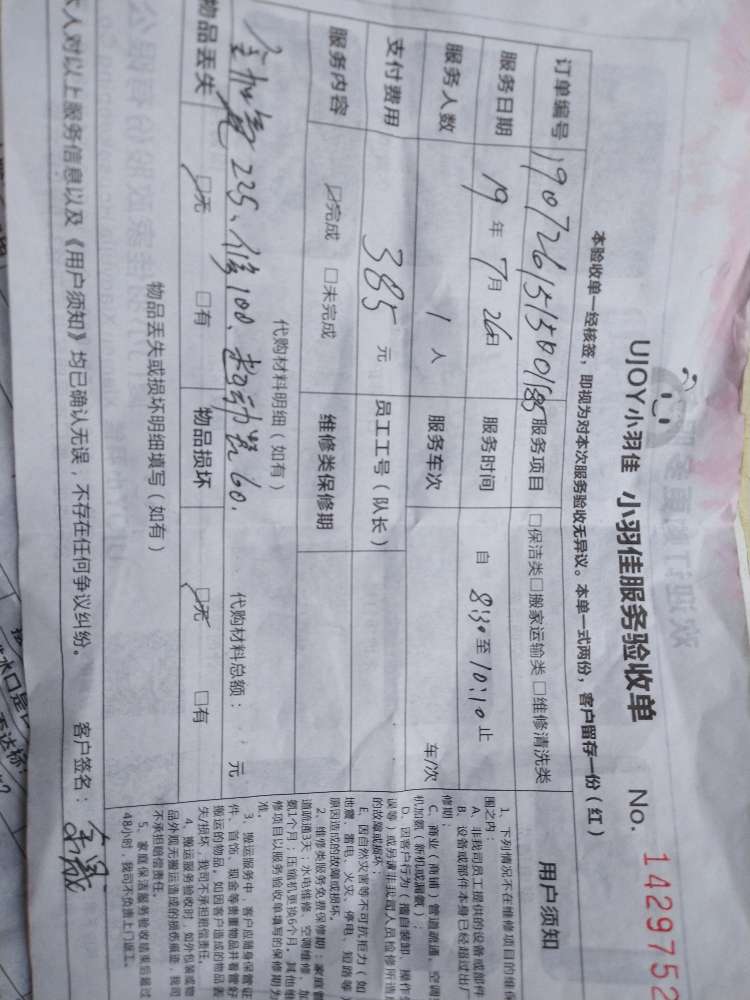 UJOY小羽佳 小羽佳服务验收单 No. 1429752
本验收单一经核签，即视为对本次服务验收无异议。本单一式两份，客户留存一份（红）
订单编号 1907261515001185 服务项目 □保洁类□搬家运输类□维修清洗类
服务日期 19年7月26日 服务时间 自 8:30至10:10止
服务人数 1人 服务车次 车/次
支付费用 385元 员工工号（队长）
服务内容 ☑完成 □未完成 维修类保修期
代购材料明细（如有） 代购材料总额： 元
225、修100、起动器60.
物品丢失 ☑无 □有 物品损坏 ☑无 □有
物品丢失或损坏明细填写（如有）
人对以上服务信息以及《用户须知》均已确认无误，不存在任何争议纠纷。 客户签名：
用户须知
1、下列情况不在维修项目的维
围之内：
A、非我司员工提供的设备或部件
B、设备或部件本身已经超过出厂
修期；
C、商业（商铺）管道疏通、空调
机加氨（新机或漏氨）；
D、因客户行为（擅自装卸、操作
误等）或另请非我司人员检修所造
的故障或损坏；
E、因自然灾害等不可抗拒力（如
地震、雷电、火灾、停电、短路等）
原因造成的故障或损坏。
2、维修类服务免费保修期：家庭管
道疏通3天；水电维修、空调维修、加
氨1个月；压缩机更换6个月。其他维
修项目以服务验收单填写的保修期为
准。
3、搬运服务中，客户应随身保管证
件、首饰、现金等贵重物品并看管好
搬运的物品，如因客户造成的物品丢
失/损坏，我司不承担赔偿责任。
4、搬运服务验收时，如外包装或物
品外观无搬运造成的损伤痕迹，我司
不承担赔偿责任。
5、家庭保洁服务验收结束后超过
48小时，我司不负责上门返工。